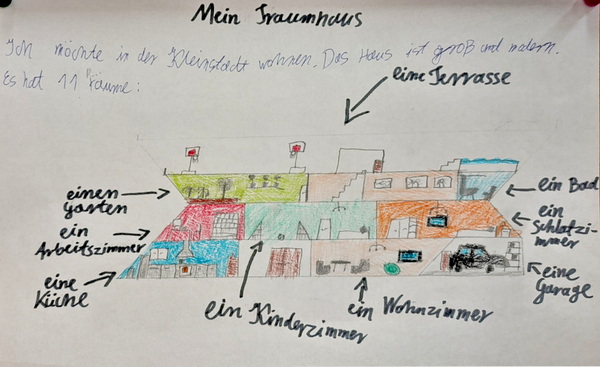 Mein Traumhaus
Ich möchte in der Kleinstadt wohnen. Das Haus ist groß und modern.
Es hat 11 Räume:
eine Terrasse
einen Garten
ein Bad
ein Arbeitszimmer
ein Schlafzi-
mmer
eine Küche
eine Garage
ein Kinderzimmer
ein Wohnzimmer